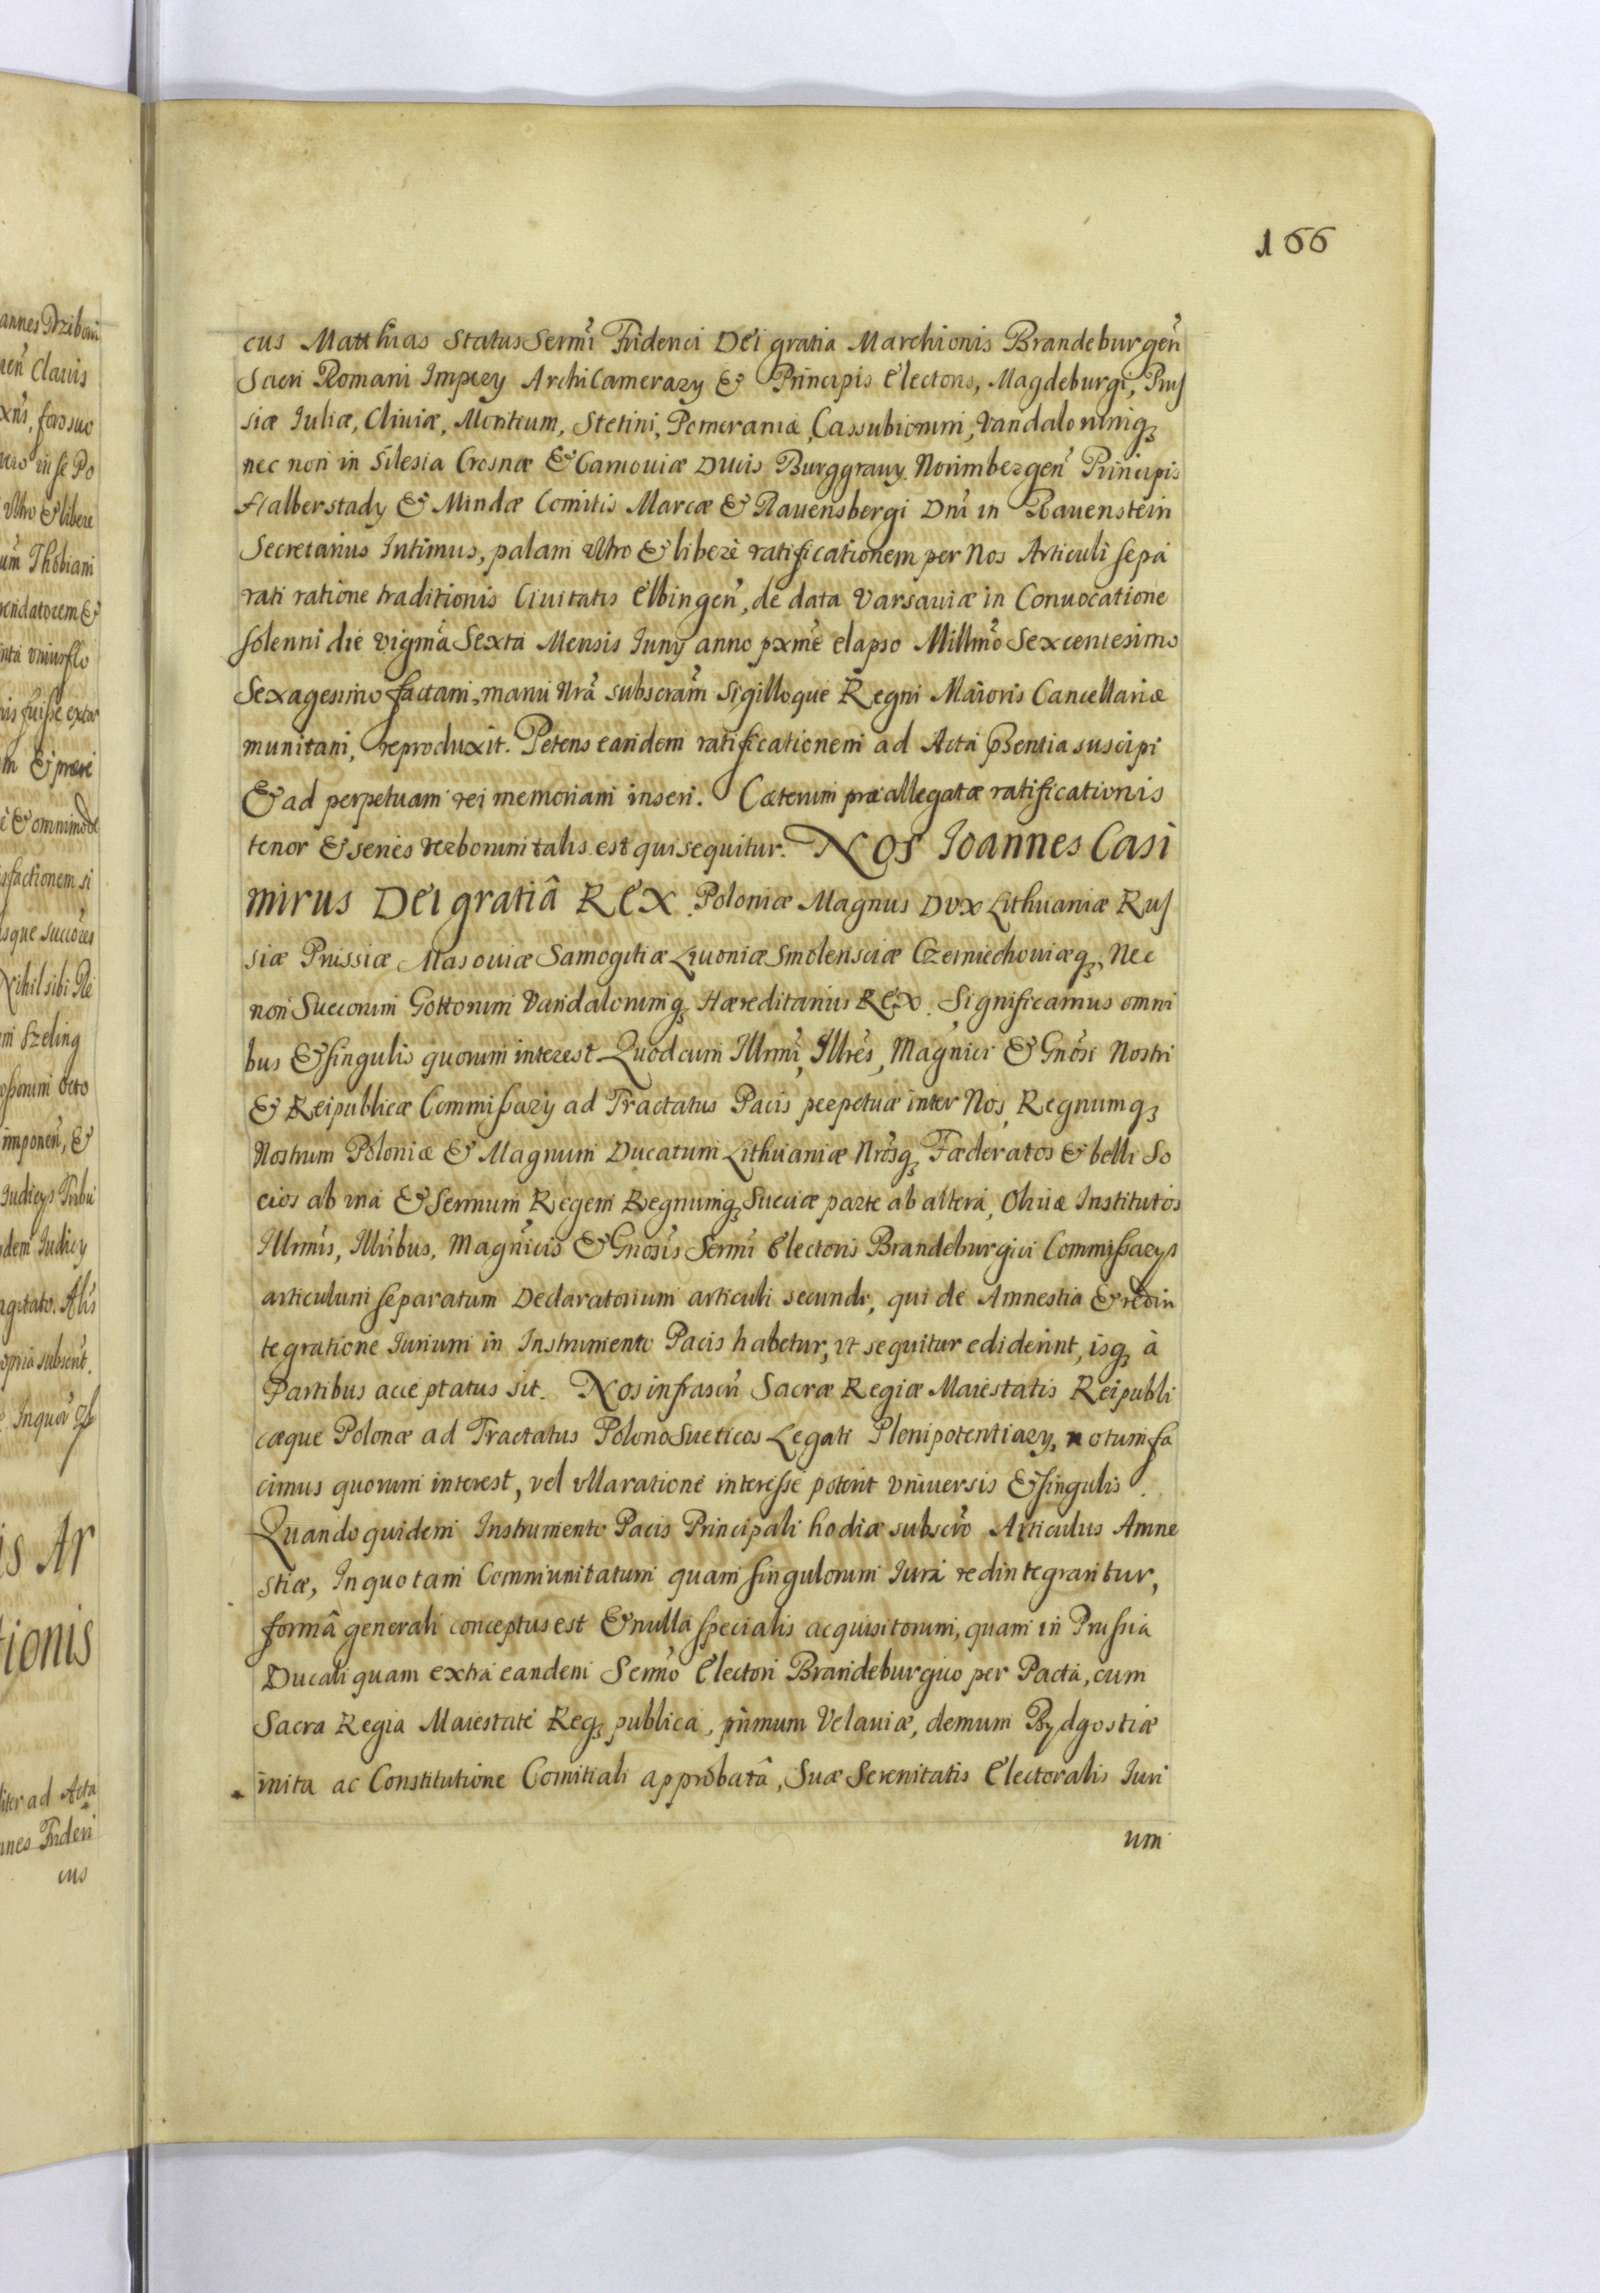 166
cus Matthias Status Sermi Friderici Dei gratia Marchionis Brandeburgen
Sacri Romani Impery Archicamerary & Principis Electoris, Magdeburgi, Prus
siæ Iuliæ, Cliuiæ, Montium, Stetini, Pomeraniæ, Cassubiorum, Vandalorumq
nec non in Silesia Crosnæ & Carnouiæ Ducis Burggrauy Norimbergen Principis
Halberstady & Mindæ Comitis Marcæ & Rauensbergi Dni in Rauenstein
Secretarius Intimus, palam vltro & liberè ratificationem per Nos Articuli sepa
rati ratione traditionis Ciuitatis Elbingen, de data Varsauiæ in Conuocatione
solenni die vigma Sexta Mensis Iuny anno pxme elapso Millmo Sexcentesimo
Sexagesimo factam, manu Nrâ subscram Sigilloque Regni Maioris Cancellariæ
munitam, reproduxit. Petens eandem ratificationem ad Acta pñsentia suscipi
& ad perpetuam rei memoriam inseri. Cæterum præallegatæ ratificationis
tenor & series verborum talis est qui sequitur. Nos Ioannes Casi
mirus Dei gratiâ Rex Poloniæ Magnus Dux Lithuaniæ Rus
siæ Prussiæ Masouiæ Samogitiæ Liuoniæ Smolensciæ Czerniechouiæq, Nec
non Suecorum Gottorum Vandalorumq Hæreditarius Rex. Significamus omni
bus & singulis quorum interest Quod cum Illrmi, Illres, Magnici & Gnosi Nostri
& Reipublicæ Commissary ad Tractatus Pacis perpetuæ inter Nos, Regnumq
Nostrum Poloniæ & Magnum Ducatum Lithuaniæ Nrosq Fæderatos & belli So
cios ab vna & Sermum Regem Regnumq Sueciæ parte ab altera, Oliuæ Institutos
Illrmis, Illribus, Magnicis & Gnosis Sermi Electoris Brandeburgici Commissarys
articulum separatum Declaratorium articuli secundi, qui de Amnestia & redin
tegratione Iurium in Instrumento Pacis habetur, vt sequitur ediderint, isq à
Partibus acceptatus sit. Nos infrascri Sacræ Regiæ Maiestatis Reipubli
cæque Polonæ ad Tractatus PolonoSueticos Legati Plenipotentiary, notum fa
cimus quorum interest, vel vlla ratione interesse poterit vniuersis & singulis.
Quando quidem Instrumento Pacis Principali hodiæ subscro Articulus Amne
stiæ, In quo tam Communitatum quam singulorum Iura redintegrantur,
formâ generali conceptus est & nulla specialis acquisitorum, quam in Prussia
Ducali quam extra eandem Sermo Electori Brandeburgico per Pacta, cum
Sacra Regia Maiestate Req publica, primum Velauiæ, demum Bydgostiæ
inita ac Constitutione Comitiali approbatâ, Suæ Serenitatis Electoralis Iuri
um